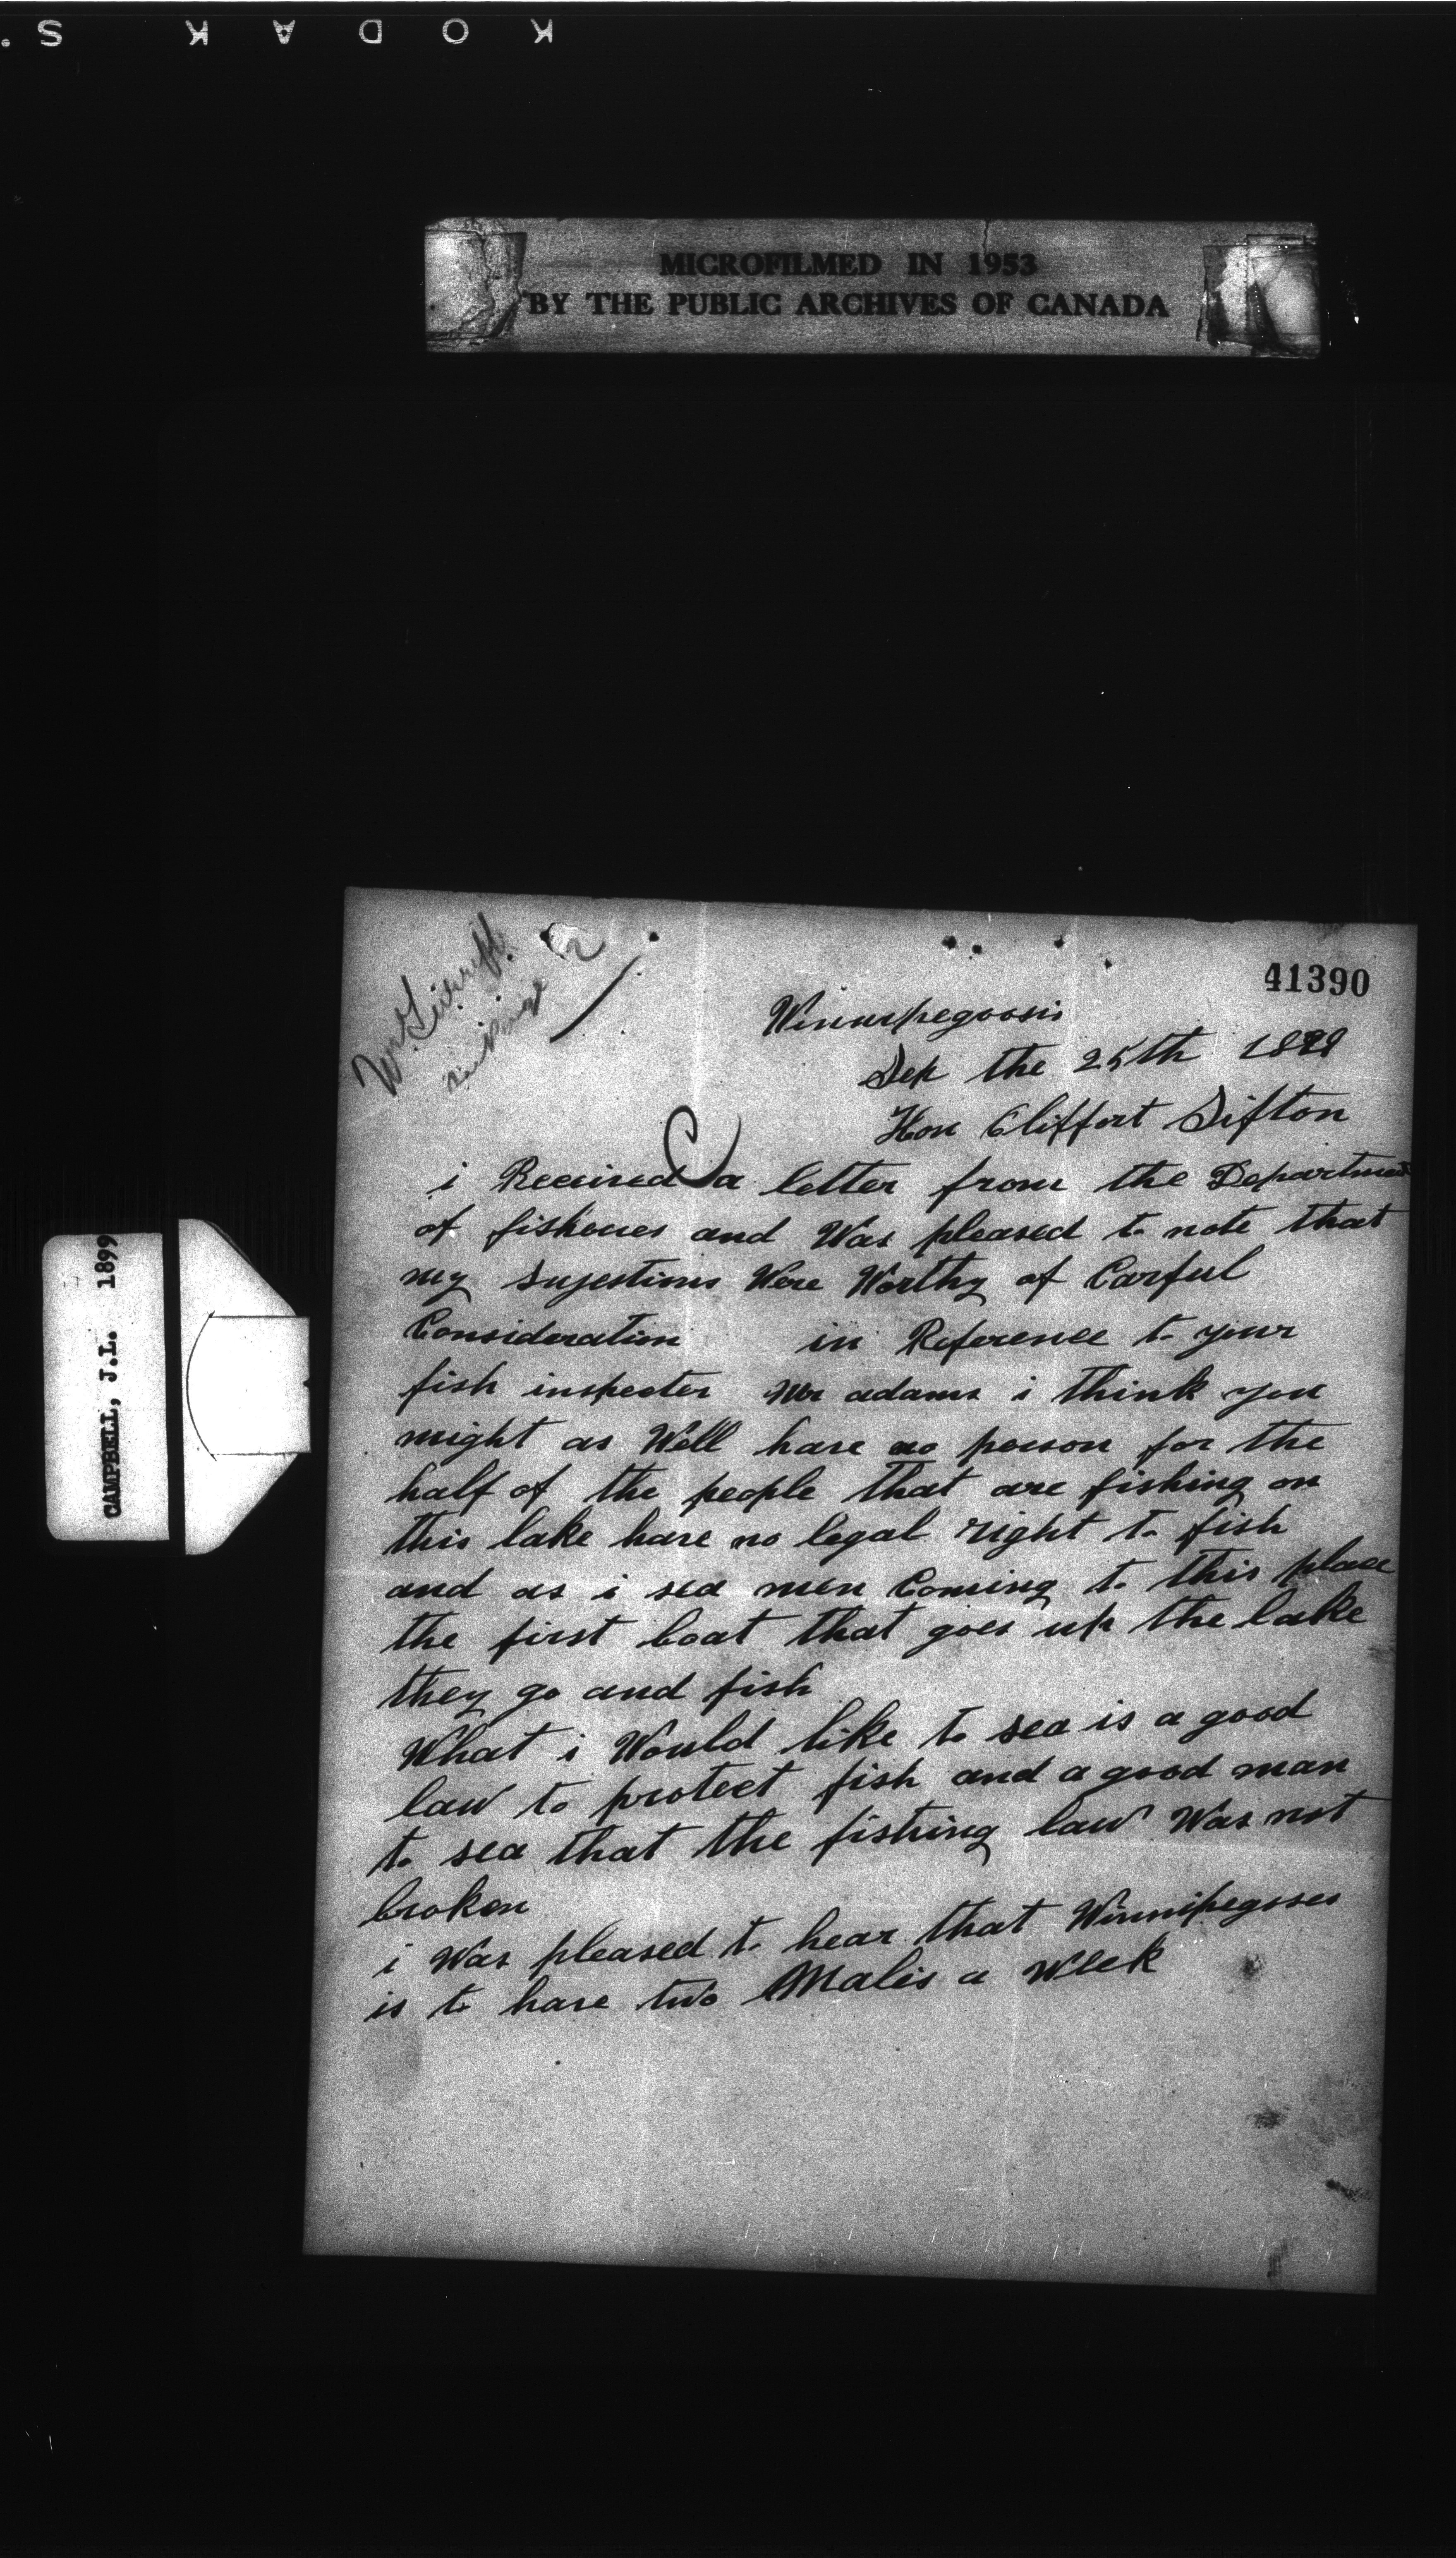 KODAK S.
MICROFILMED IN 1953
BY THE PUBLIC ARCHIVES OF CANADA
CAMPBELL, J.L. 1899
41390
Winnipegoosis
Sep the 25th 1899
Hon Cliffort Sifton
i Received a letter from the Department
of fisheries and Was pleased to note that
my sujestions Were Worthy of Carful
Consideration in Reference to your
fish inspecter Mr adams i think you
might as Well have no person for the
half of the people that are fishing on
this lake have no legal right to fish
and as i sea men Coming to this place
the first boat that goes up the lake
they go and fish
What i Would like to sea is a good
law to protect fish and a good man
to sea that the fishing law Was not
broken
i Was pleased to hear that Winnipegoses
is to have two Malis a Week